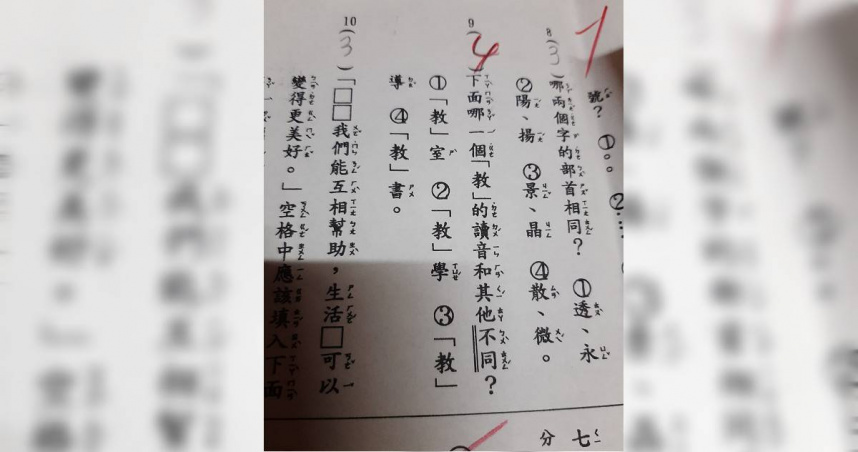 號？ ①。。 ②
8 (3) 哪兩個字的部首相同？ ①透、永
②陽、揚 ③景、晶 ④散、微。
9 (4) 下面哪一個「教」的讀音和其他不同？
①「教」室 ②「教」學 ③「教」
導 ④「教」書。
10 (3) 「□□我們能互相幫助，生活□可以
變得更美好。」空格中應該填入下面
七
分